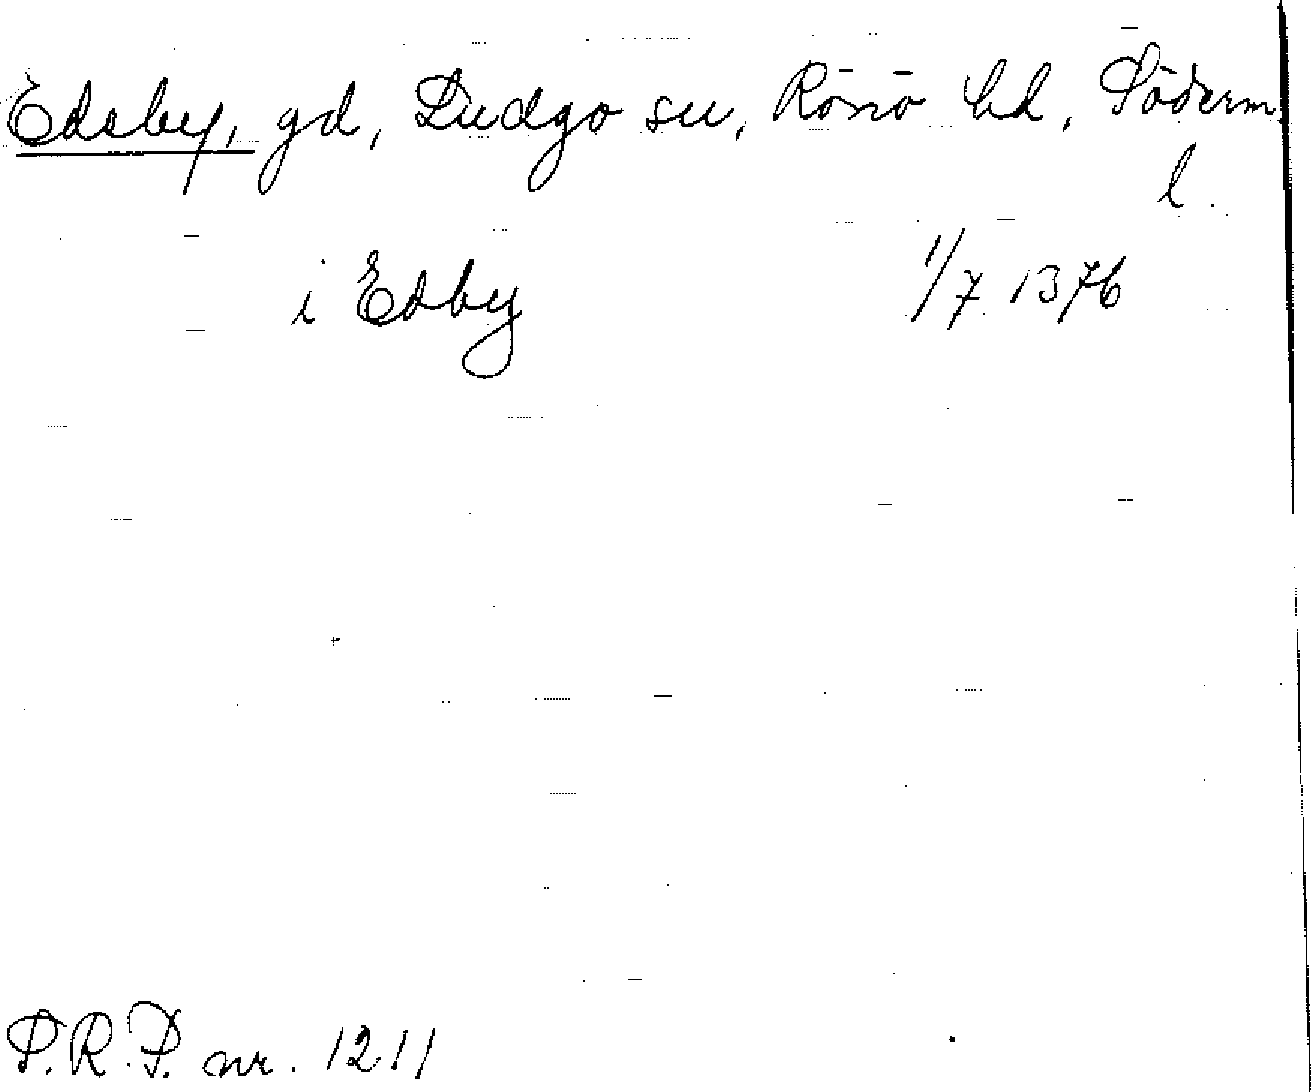 Edsby, gd, Ludgo sn, Rönö hd, Söderm.
l.
i Edby 1/7 1376
P.R.P. nr. 1211